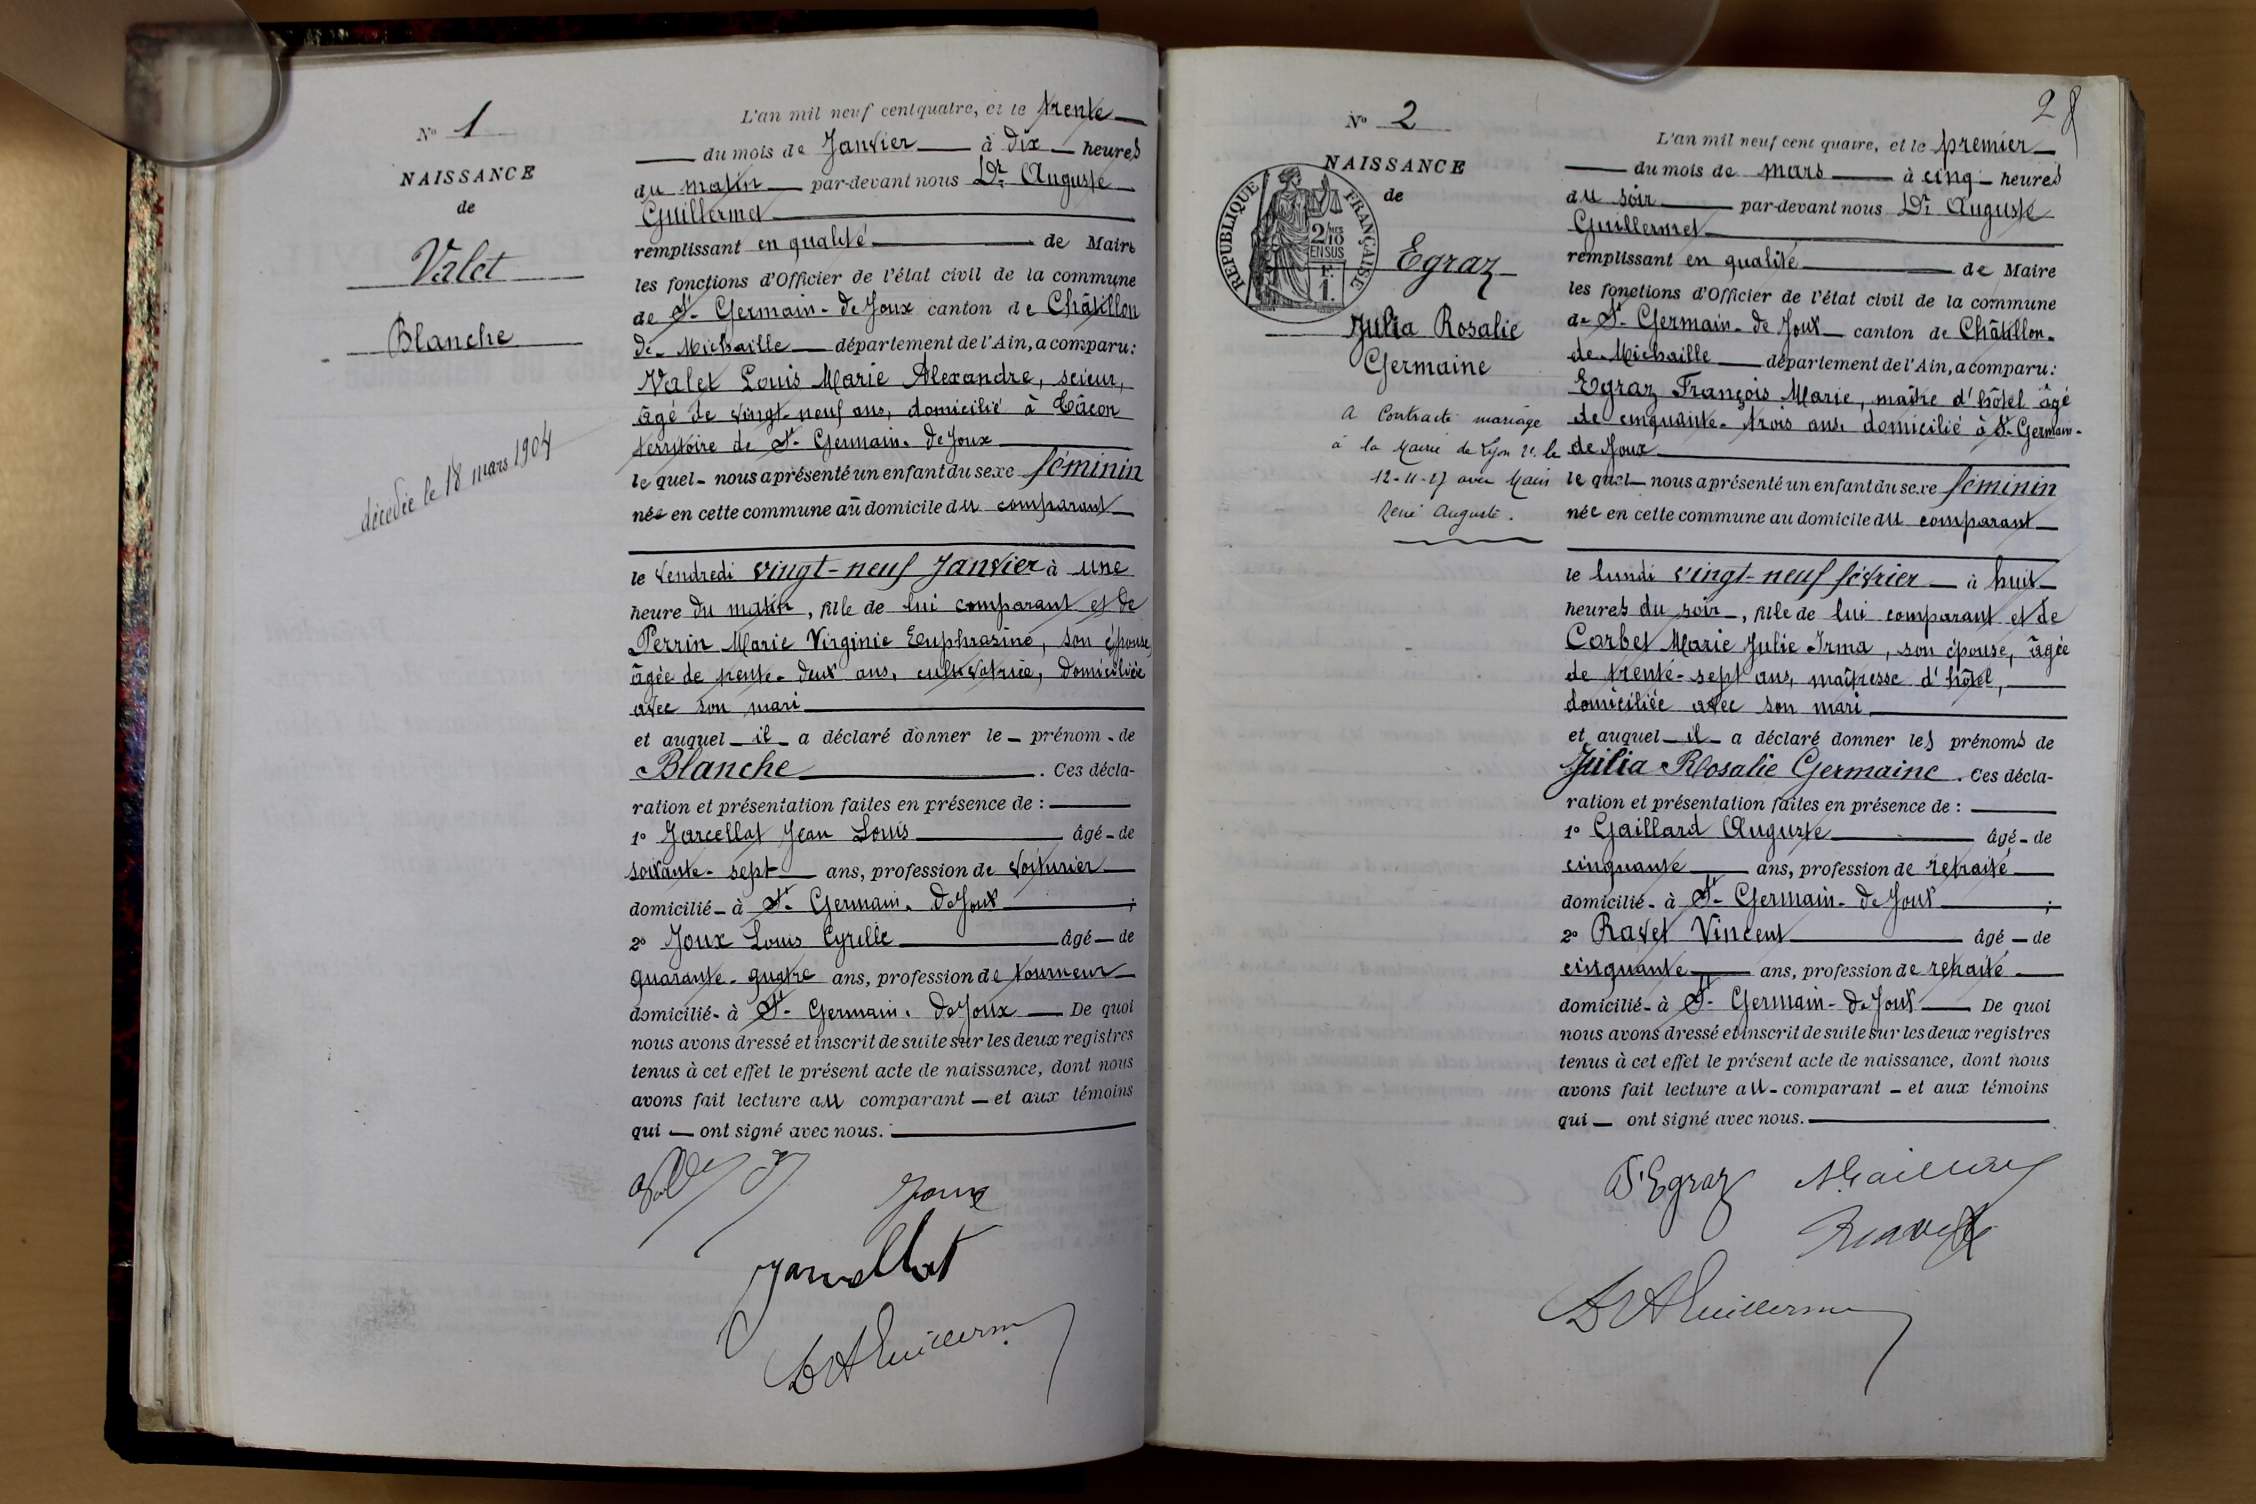 N° 1
NAISSANCE
de
Valet
Blanche
décédée le 18 mars 1904
L'an mil neuf cent quatre, et le trente
du mois de Janvier à dix heures
du matin par-devant nous Dr. Auguste
Guillermet
remplissant en qualité de Maire
les fonctions d'Officier de l'état civil de la commune
de St. Germain-de Joux canton de Châtillon
de Michaille département de l'Ain, a comparu:
Valet Louis Marie Alexandre, scieur,
âgé de vingt-neuf ans, domicilié à Tâcon
territoire de St. Germain-de Joux
le quel nous a présenté un enfant du sexe féminin
née en cette commune au domicile du comparant
le vendredi vingt-neuf Janvier à une
heure du matin, fille de lui comparant et de
Perrin Marie Virginie Euphrasine, son épouse,
âgée de trente-deux ans, cultivatrice, domiciliée
avec son mari
et auquel il a déclaré donner le prénom de
Blanche. Ces décla-
ration et présentation faites en présence de :
1° Jarcellat Jean Louis âgé de
soixante-sept ans, profession de voiturier
domicilié à St. Germain-de Joux ;
2° Joux Louis Cyrille âgé de
quarante-quatre ans, profession de tourneur
domicilié à St. Germain-de Joux De quoi
nous avons dressé et inscrit de suite sur les deux registres
tenus à cet effet le présent acte de naissance, dont nous
avons fait lecture au comparant et aux témoins
qui ont signé avec nous.
Joux
Jarcellat
Dr A Guillermet
28
N° 2
NAISSANCE
de
RÉPUBLIQUE FRANÇAISE
2/10
EN SUS
F.
1.
Egraz
Julia Rosalie
Germaine
a Contracté mariage
à la Mairie de Lyon 2e le
12-11-27 avec
René Auguste.
L'an mil neuf cent quatre, et le premier
du mois de mars à cinq heures
du soir par-devant nous Dr. Auguste
Guillermet
remplissant en qualité de Maire
les fonctions d'Officier de l'état civil de la commune
de St. Germain-de Joux canton de Châtillon-
de Michaille département de l'Ain, a comparu:
Egraz François Marie, maître d'hôtel âgé
de cinquante-trois ans domicilié à St. Germain-
de Joux
le quel nous a présenté un enfant du sexe féminin
née en cette commune au domicile du comparant
le lundi vingt-neuf février à huit
heures du soir, fille de lui comparant et de
Corbet Marie Julie Irma, son épouse, âgée
de trente-sept ans, maîtresse d'hôtel,
domiciliée avec son mari
et auquel il a déclaré donner les prénoms de
Julia Rosalie Germaine. Ces décla-
ration et présentation faites en présence de :
1° Gaillard Auguste âgé de
cinquante ans, profession de retraité
domicilié à St. Germain-de Joux ;
2° Ravet Vincent âgé de
cinquante ans, profession de retraité
domicilié à St. Germain-de Joux De quoi
nous avons dressé et inscrit de suite sur les deux registres
tenus à cet effet le présent acte de naissance, dont nous
avons fait lecture au comparant et aux témoins
qui ont signé avec nous.
F. Egraz A Gaillard
Ravet
Dr A Guillermet